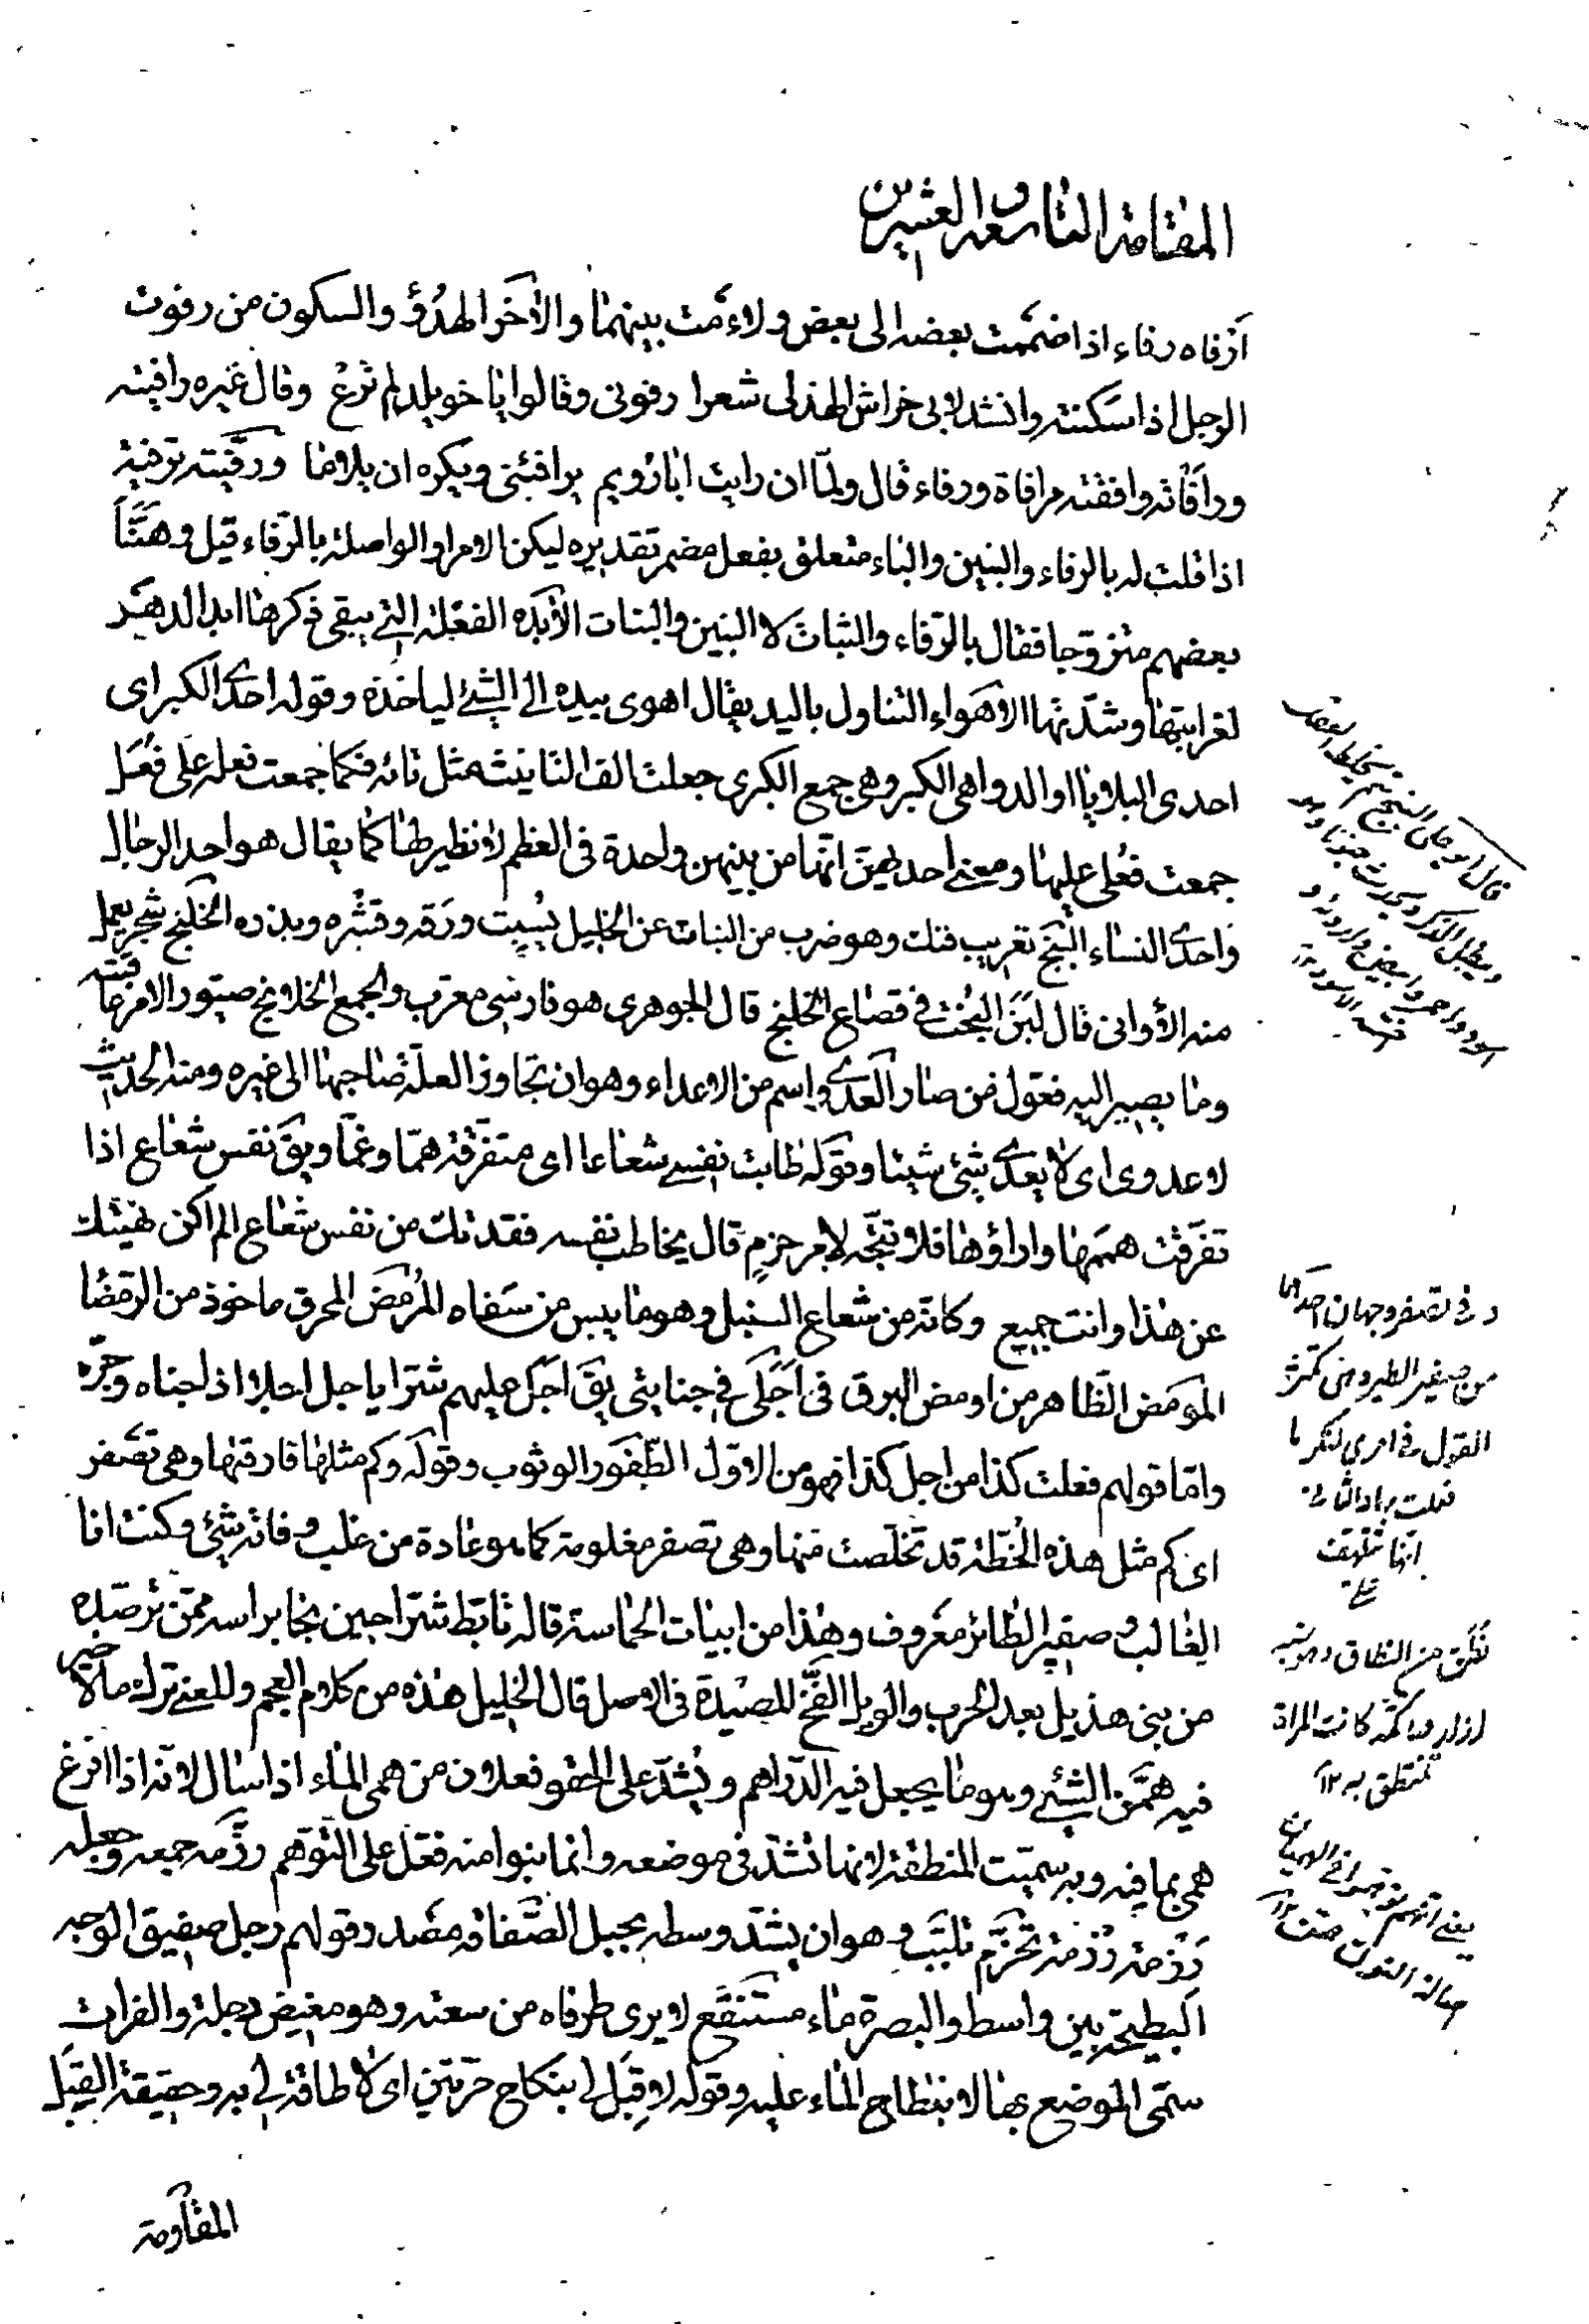 المقامة التاسعة والعشرين
ارفاه رفاء اذا ضممت بعضه الى بعض ولاءمت بينهما والآخر الهدُوّ والسكون من رفوت
الرجل اذا سكنته وانشد لابي خراش الهذلى شعرا رفونى وقالوا يا خويلد لم ترع وقال غيره رافيته
ورافاته وافقته مرافاة ورفاء قال ولما ان رايت ابا رويم يرافئنى ويكره ان يلاوما ورفيته ترفية
اذا قلت له بالرفاء والبنين والباء متعلق بفعل مضمر تقديره ليكن الامر او المواصلة بالرفاء قيل وهنّأ
بعضهم متزوّجا فقال بالرّفاء والثبات لا البنين والبنات الآبده الفعلة التى يبقى ذكرها ابد الدهر
لغرابتها وشدّتها الاهواء التناول باليد يقال اهوى بيده الى الشئ لياخذه وقوله احدى الكبر اى
احدى البلايا او الدواهى الكبر وهى جمع الكبرى جعلت الف التانيث مثل تائه فكما جمعت فعله على فُعَل
جمعت فُعلى عليها ومعنى احديهن انها من بينهن واحدة فى العظم لا نظير لها كما يقال هو احد الرجال
واحدى النساء البنج تعريب فنك وهو ضرب من النبات عن الخليل يسبت ورقه وقشره وبذره الخلنج شجر يعمل
منه الأوانى قال لبن البخت فى قصاع الخلنج قال الجوهرى هو فارسى معرب والجمع الخلانج صيّور الامر عاقبته
وما يصير اليه فعّول من صار العدوى اسم من الاعداء وهو ان تجاوز العلة صاحبها الى غيره ومنه الحديث
لا عدوى اى لا يعدى شئ شيئا وقوله طابت نفسى شعاعا اى متفرقة همّا وغمّا ويق نفس شعاع اذا
تفرقت هممها واراؤها فلا تتّجه لامر جزم قال يخاطب نفسه فقدتك من نفس شعاع الم اكن نهيتك
عن هذا وانت جميع وكانه من شعاع السنبل وهو ما يبس من سفاه المُرمَض المحرق ماخوذ من الرمضا
المومض الظاهر من اومض البرق فى اَجلى فى جنايتى يق اجل عليهم شرا ياجل اجلا اذا جناه وجرّه
وامّا قولهم فعلت كذا من اجل كذا فهو من الاول الطّفور الوثوب وقوله وكم مثلها فارقتها وهى تصفر
اى كم مثل هذه الخُطّة قد تخلّصت منها وهى تصفر مغلومة كما هو عادة من غلب وفاته شئ وكنت انا
الغالب وصفير الطائر معروف وهذا من ابيات الحماسة قاله تابّط شرّا حين نجا براسه ممّن ترصّده
من بنى هذيل بعد الحرب والويل الفخّ للمصيدة فى الاصل قال الخليل هذه من كلام العجم والمعنى ترك ما لا خير
فيه همّن الشئ وهو ما يجعل فيه الدراهم ويُشدّ على الحقو فعلان من همى الماء اذا سال لانه اذا افرغ
همى بما فيه وبه سميت المنطقة لانها تشدّ فى موضعه وانما بنوا منه فعّل على التوهّم رزّمه جمعه وجعله
رزمة رزمة تحزّم تلبّب وهو ان يشدّ وسطه بحبل الصّفاقه مصدر قولهم رجل صفيق الوجه
البطيحة بين واسط والبصرة ماء مستنقع لا يرى طرفاه من سعته وهو مغيض دجلة والفرات
سمّى الموضع بها لانبطاح الماء عليه وقوله لا قِبَل لى بنكاح حرّتين اى لا طاقة لى به وحقيقة القِبَل
المقاومة
و فى تصفر وجهان احدهما
من صفير الطير وهى تمثّل
القول فى امرى لتكر ما
فعلت به والثانى
انها تتلهف
من النطاق وهو شبه
ازار فيه تكّة كانت المراة
تنتطق به ١٢